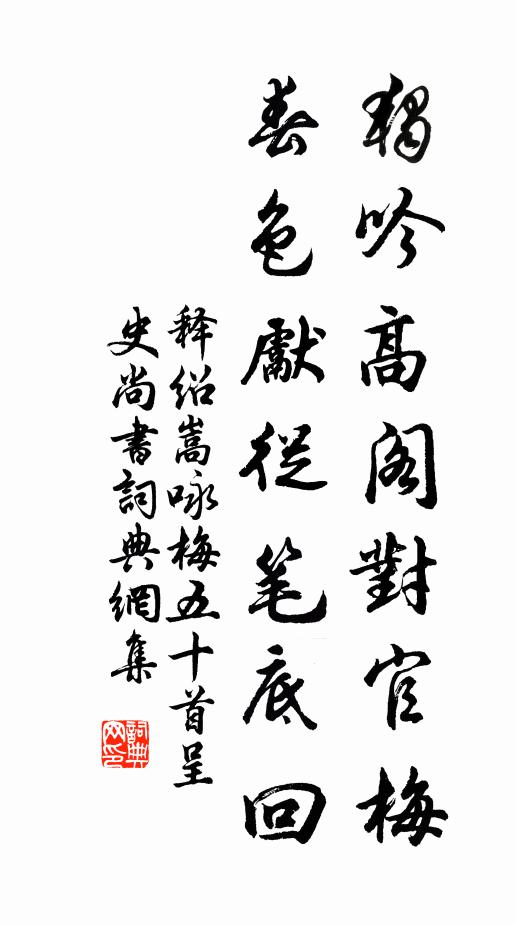 獨吟高阁對官梅
春色獻從笔底回
释绍嵩咏梅五十首呈
史尚書詞典網集
詞典
网印